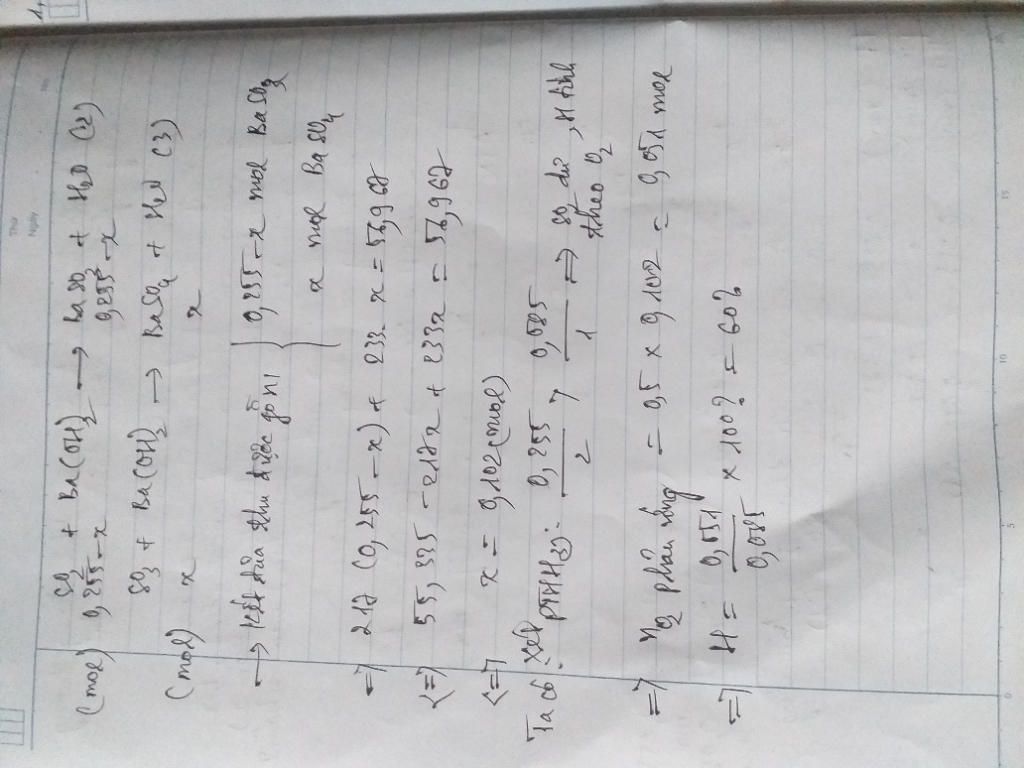 Thứ
Ngày
No.
SO2 + Ba(OH)2 → BaSO3 + H2O (2)
(mol) 0,255-x 0,255-x
SO3 + Ba(OH)2 → BaSO4 + H2O (3)
(mol) x x
→ Kết tủa thu được gồm { 0,255-x mol BaSO3
x mol BaSO4
=> 217 (0,255-x) + 233 x = 56,967
<=> 55,335 - 217x + 233x = 56,967
<=> x = 0,102 (mol)
Ta có: Xét PTHH: 0,255/2 > 0,085/1 => SO2 dư, H tính
theo O2
=> nO2 phản ứng = 0,5 x 0,102 = 0,051 mol
=> H = 0,051/0,085 x 100% = 60%
0 5 10 15
1,